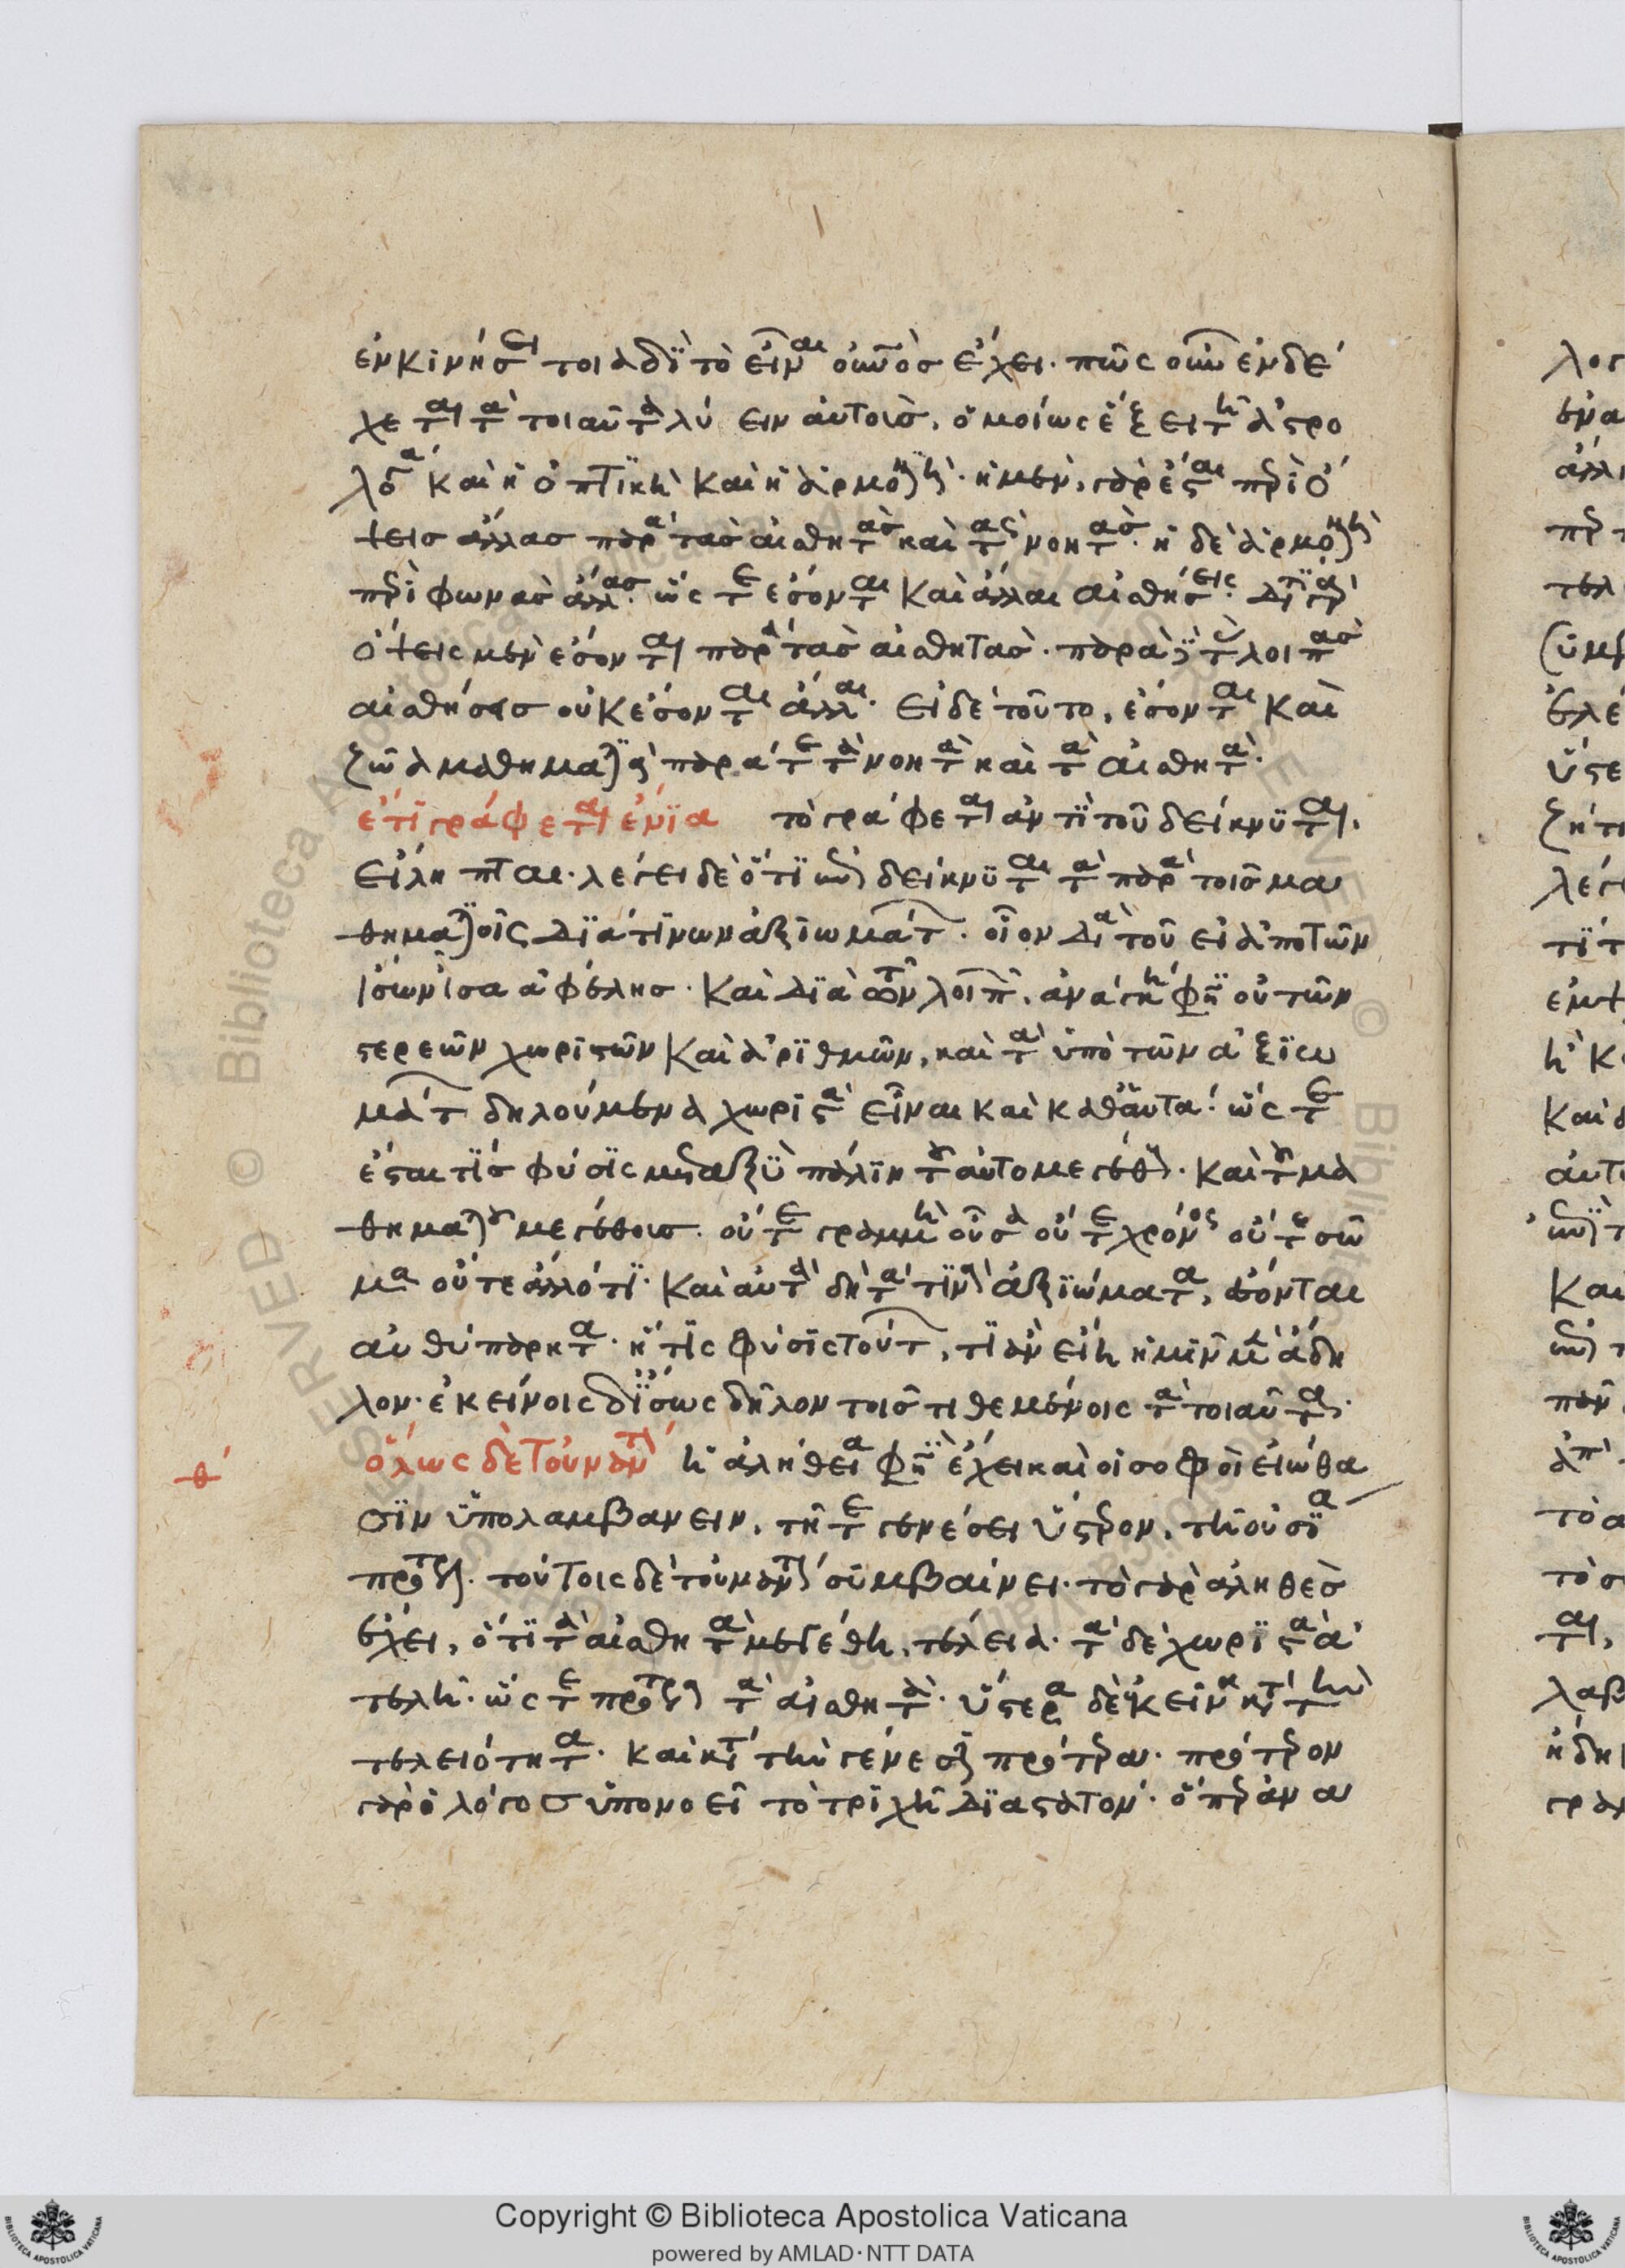 ἐν κινήσει τοιαδὶ τὸ εἶναι ὁ οὐρανὸς ἔχει. πῶς οὖν ἐνδέ
χεται τὰ τοιαῦτα λύειν αὐτοῖς. ὁμοίως ἕξει τῇ ἀστρο
λογίᾳ καὶ ἡ ὀπτικὴ καὶ ἡ ἁρμονική. ἡ μὲν γὰρ ἔσται περὶ ὄ
ψεις ἄλλας παρὰ τὰς αἰσθητὰς καὶ τὰς νοητάς. ἡ δὲ ἁρμονικὴ
περὶ φωνὰς ἄλλας. ὥστε ἔσονται καὶ ἄλλαι αἰσθήσεις. διατί γὰρ
ὄψεις μὲν ἔσονται παρὰ τὰς αἰσθητάς. παρὰ δὲ τὰς λοιπὰς
αἰσθήσεις οὐκ ἔσονται ἄλλαι. εἰ δὲ τοῦτο, ἔσονται καὶ
ζῶα μαθηματικὰ παρά τε τὰ νοητὰ καὶ τὰ αἰσθητά.
ἔτι γράφεται ἔνια τὸ γράφεται ἀντὶ τοῦ δείκνυται.
εἴληπται. λέγει δὲ ὅτι δείκνυται τὰ παρὰ τοῖς μα
θηματικοῖς διά τινων ἀξιωμάτων. οἷον διὰ τοῦ εἰ ἀπὸ τῶν
ἴσων ἴσα ἀφέλῃς. καὶ διὰ τῶν λοιπῶν. ἀνάγκη φησὶ οὐ τῶν
στερεῶν χωριστῶν καὶ ἀριθμῶν, καὶ τὰ ὑπὸ τῶν ἀξιω
μάτων δηλούμενα χωριστὰ εἶναι καὶ καθαυτά. ὥστε
ἔσται τίς φύσις μεταξὺ πάλιν τοῦ αὐτομεγέθους. καὶ τοῦ μα
θηματικοῦ μεγέθους. οὔτε γραμμὴ οὖσα οὔτε χρόνος οὔτε σῶ
μα οὔτε ἄλλό τι. καὶ αὐτὰ δὴ τά τινα ἀξιώματα, ἔσονται
αὐθύπαρκτα. ἥτις φύσις τούτων, τί ἂν εἴη ἡμῖν μὲν ἄδη
λον. ἐκείνοις δ' ἴσως δῆλον τοῖς τιθεμένοις τὰ τοιαῦτα.
ὅλως δὲ τοὐναντίον ἡ ἀλήθεια φησὶν ἔχει καὶ οἱ σοφοὶ εἰώθα
σιν ὑπολαμβάνειν, τῇ τε γενέσει ὕστερον, τῇ οὐσίᾳ
πρότερον. τούτοις δὲ τοὐναντίον συμβαίνει. τὸ γὰρ ἀληθὲς
ἔχει, ὅτι τὰ αἰσθητὰ μεγέθη, τέλεια. τὰ δὲ χωριστὰ ἀ
τελῆ. ὥστε πρότερον τὰ αἰσθητά. ὕστερα δὲ κεῖνα κατὰ τὴν
τελειότητα. καὶ κατὰ τὴν γένεσιν πρότερα. πρότερον
γὰρ ὁ λόγος ὑπονοεῖ τὸ τριχῇ διαστατόν. ὅπερ ἀνα
θ΄